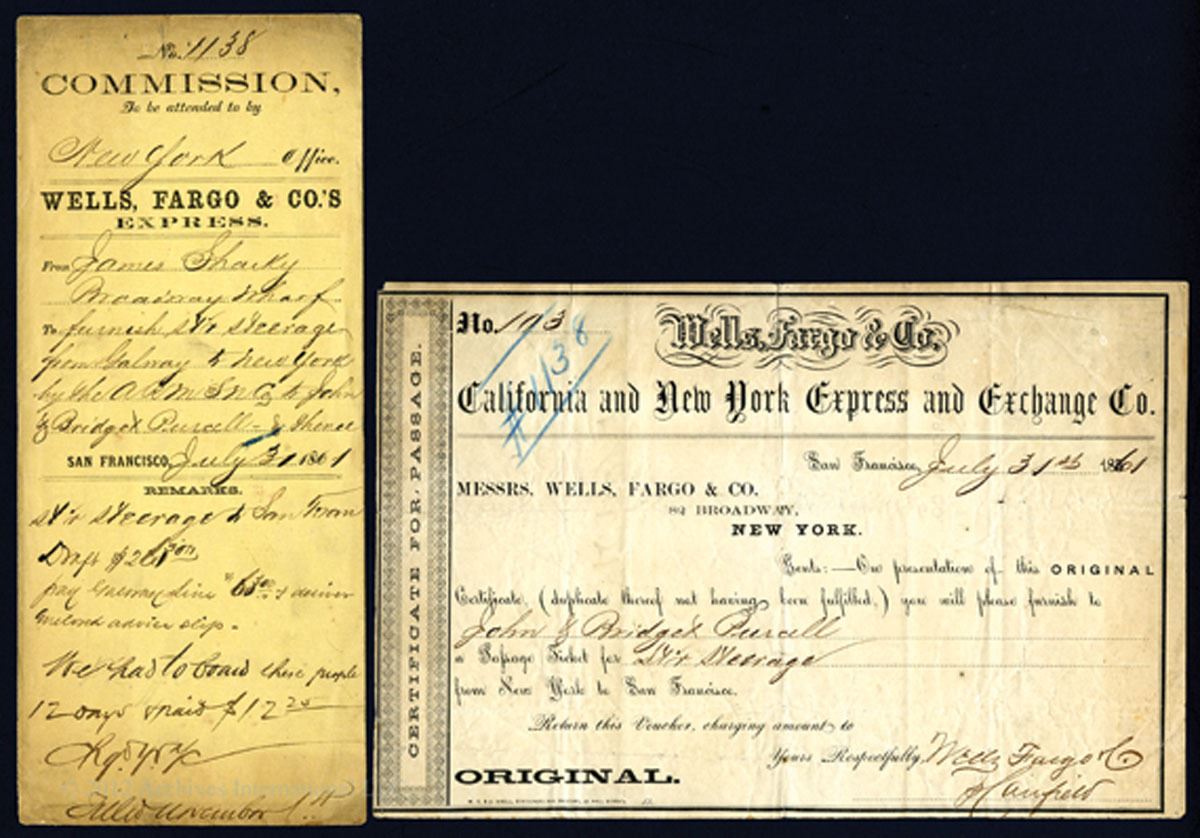 No. 1138
COMMISSION,
To be attended to by
New York Office.
WELLS, FARGO & CO.'S
EXPRESS.
From James Sharky
Broadway Wharf
To furnish st'r steerage
from Galway to New York
by the A R M S N Co to John
& Bridget Purcell - & thence
SAN FRANCISCO, July 31 1861
REMARKS.
st'r steerage to San Fran
Draft
pay Galway Line & deliver
advice slip.
We had to board these people
12 days & paid $12
November
No. 193
# 1138
Wells, Fargo & Co.
California and New York Express and Exchange Co.
San Francisco, July 31st 1861
MESSRS. WELLS, FARGO & CO.
82 BROADWAY,
NEW YORK.
Gents:—On presentation of this ORIGINAL
Certificate, (duplicate thereof not having been fulfilled,) you will please furnish to
John & Bridget Purcell
a Passage Ticket for St'r Steerage
from New York to San Francisco.
Return this Voucher, charging amount to
Yours Respectfully, Wells Fargo & Co
ORIGINAL.
CERTIFICATE FOR PASSAGE.